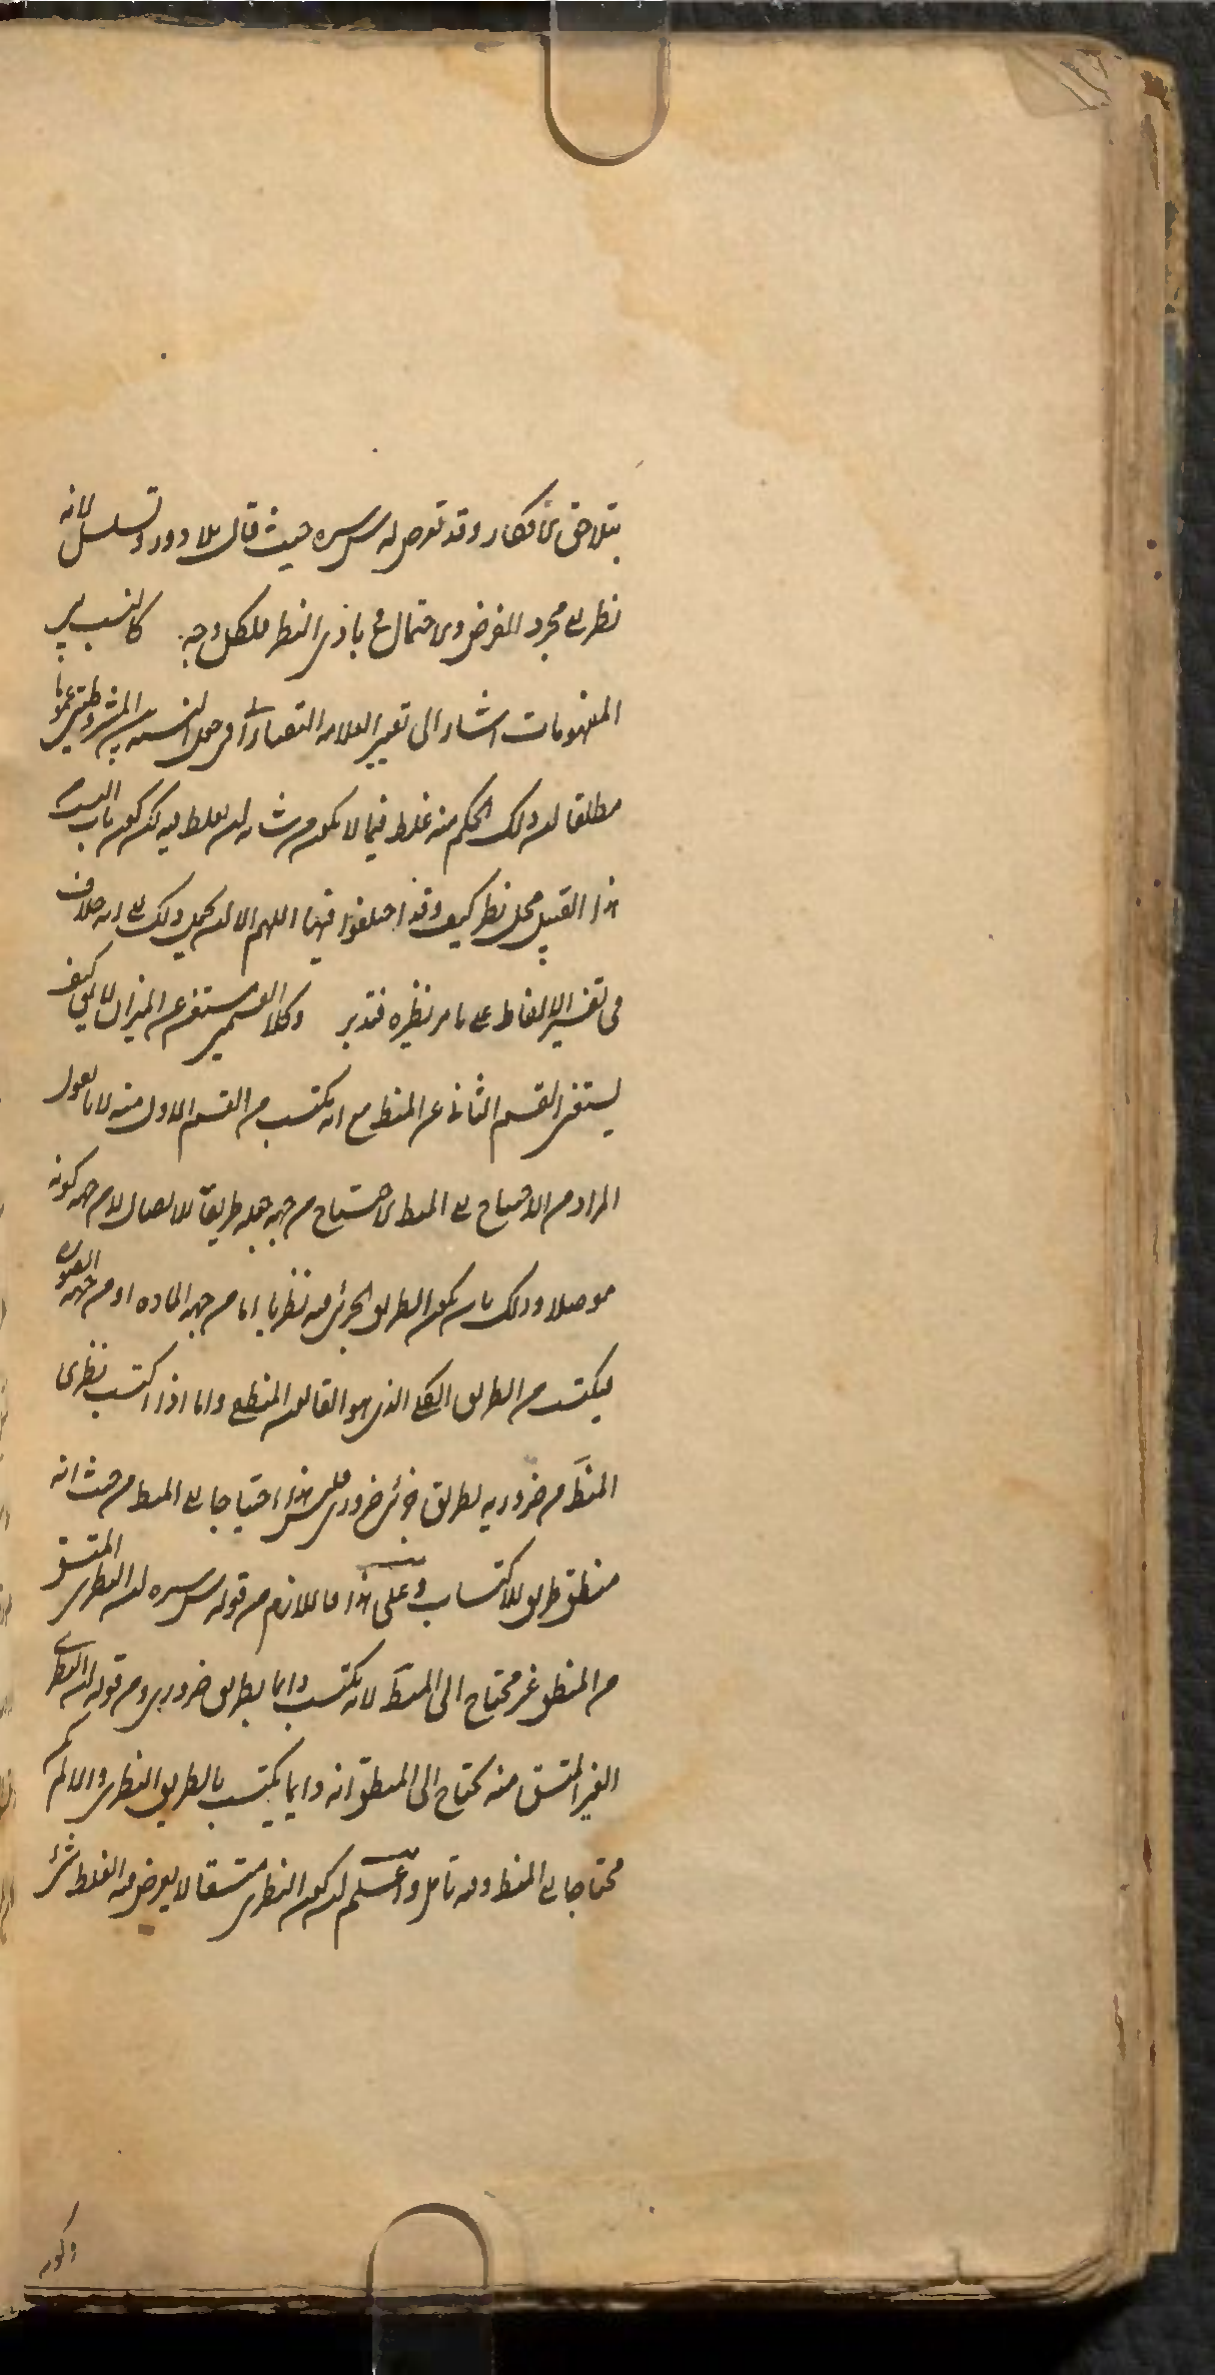 بتلاحق الافكار وقد تعرض له س سره حيث قال بلا دور وتسلسل لانه
نظر الى مجرد الفرض والاحتمال بادى النظر فلكل وجه كالنسب بين
المفهومات اشار الى تعيير العلامة التفتازانى فى النسبة بين المشروطتين
مطلقا ان ذلك الحكم منه غلط فيما لا يكون من شانه ان يغلط فيه لكن كون باب النسب
هذا القبيل محل نظر كيف وقد اختلفوا فيها اللهم الا ان يحمل ذلك على انه خلاف
فى تفسير الالفاظ على ما مر نظيره فتدبر وكلا القسمين مستغن عن الميزان لا يقال كيف
يستغنى القسم الثانى عن المنطق مع انه يكتسب من القسم الاول منه لانا نقول
المراد من الاحتياج الى المنطق الاحتياج من جهة جعله طريقا للايصال لا من جهة كونه
موصلا وذلك بان يكون الطريق الجزئى فيه نظريا اما من جهة المادة او من جهة الصورة
ليكتسب من الطريق الكلى الذى هو القانون المنطقى واما اذا اكتسب نظرى
المنط من ضروريه بطريق جزئى ضرورى فليس هذا احتياجا الى المنط من حيث انه
منطق طريق للاكتساب وعلى هذا فاللازم من قوله س سره ان النظرى المتسق
من المنطق غير محتاج الى المنط لانه يكتسب دائما بطريق ضرورى ومن قوله ان النظرى
الغير المتسق منه يحتاج الى المنطق انه دائما يكتسب بالطريق النظرى والا لم يكن
محتاجا الى المنط وفيه تامل واعلم ان كون النظرى متسقا لا يعرض فيه الغلط شئ